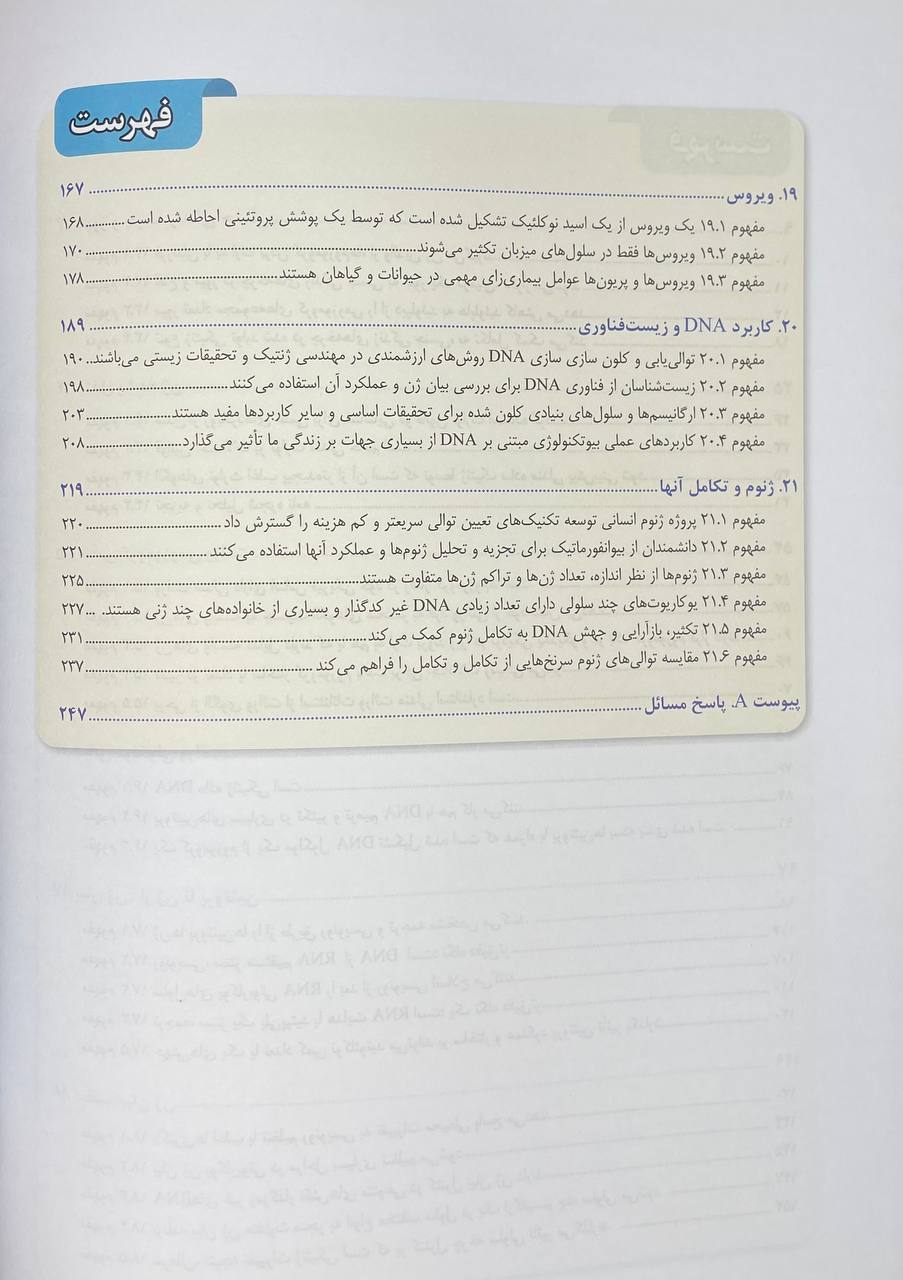 فهرست
۱۹. ویروس ........ ۱۶۷
مفهوم ۱۹.۱ یک ویروس از یک اسید نوکلئیک تشکیل شده است که توسط یک پوشش پروتئینی احاطه شده است ........ ۱۶۸
مفهوم ۱۹.۲ ویروس‌ها فقط در سلول‌های میزبان تکثیر می‌شوند ........ ۱۷۰
مفهوم ۱۹.۳ ویروس‌ها و پریون‌ها عوامل بیماری‌زای مهمی در حیوانات و گیاهان هستند ........ ۱۷۸
۲۰. کاربرد DNA و زیست‌فناوری ........ ۱۸۹
مفهوم ۲۰.۱ توالی‌یابی و کلون سازی سازی DNA روش‌های ارزشمندی در مهندسی ژنتیک و تحقیقات زیستی می‌باشند.. ۱۹۰
مفهوم ۲۰.۲ زیست‌شناسان از فناوری DNA برای بررسی بیان ژن و عملکرد آن استفاده می‌کنند ........ ۱۹۸
مفهوم ۲۰.۳ ارگانیسم‌ها و سلول‌های بنیادی کلون شده برای تحقیقات اساسی و سایر کاربردها مفید هستند ........ ۲۰۳
مفهوم ۲۰.۴ کاربردهای عملی بیوتکنولوژی مبتنی بر DNA از بسیاری جهات بر زندگی ما تأثیر می‌گذارد ........ ۲۰۸
۲۱. ژنوم و تکامل آنها ........ ۲۱۹
مفهوم ۲۱.۱ پروژه ژنوم انسانی توسعه تکنیک‌های تعیین توالی سریعتر و کم هزینه را گسترش داد ........ ۲۲۰
مفهوم ۲۱.۲ دانشمندان از بیوانفورماتیک برای تجزیه و تحلیل ژنوم‌ها و عملکرد آنها استفاده می‌کنند ........ ۲۲۱
مفهوم ۲۱.۳ ژنوم‌ها از نظر اندازه، تعداد ژن‌ها و تراکم ژن‌ها متفاوت هستند ........ ۲۲۵
مفهوم ۲۱.۴ یوکاریوت‌های چند سلولی دارای تعداد زیادی DNA غیر کدگذار و بسیاری از خانواده‌های چند ژنی هستند. ... ۲۲۷
مفهوم ۲۱.۵ تکثیر، بازآرایی و جهش DNA به تکامل ژنوم کمک می‌کند ........ ۲۳۱
مفهوم ۲۱.۶ مقایسه توالی‌های ژنوم سرنخ‌هایی از تکامل و تکامل را فراهم می‌کند ........ ۲۳۷
پیوست A. پاسخ مسائل ........ ۲۴۷